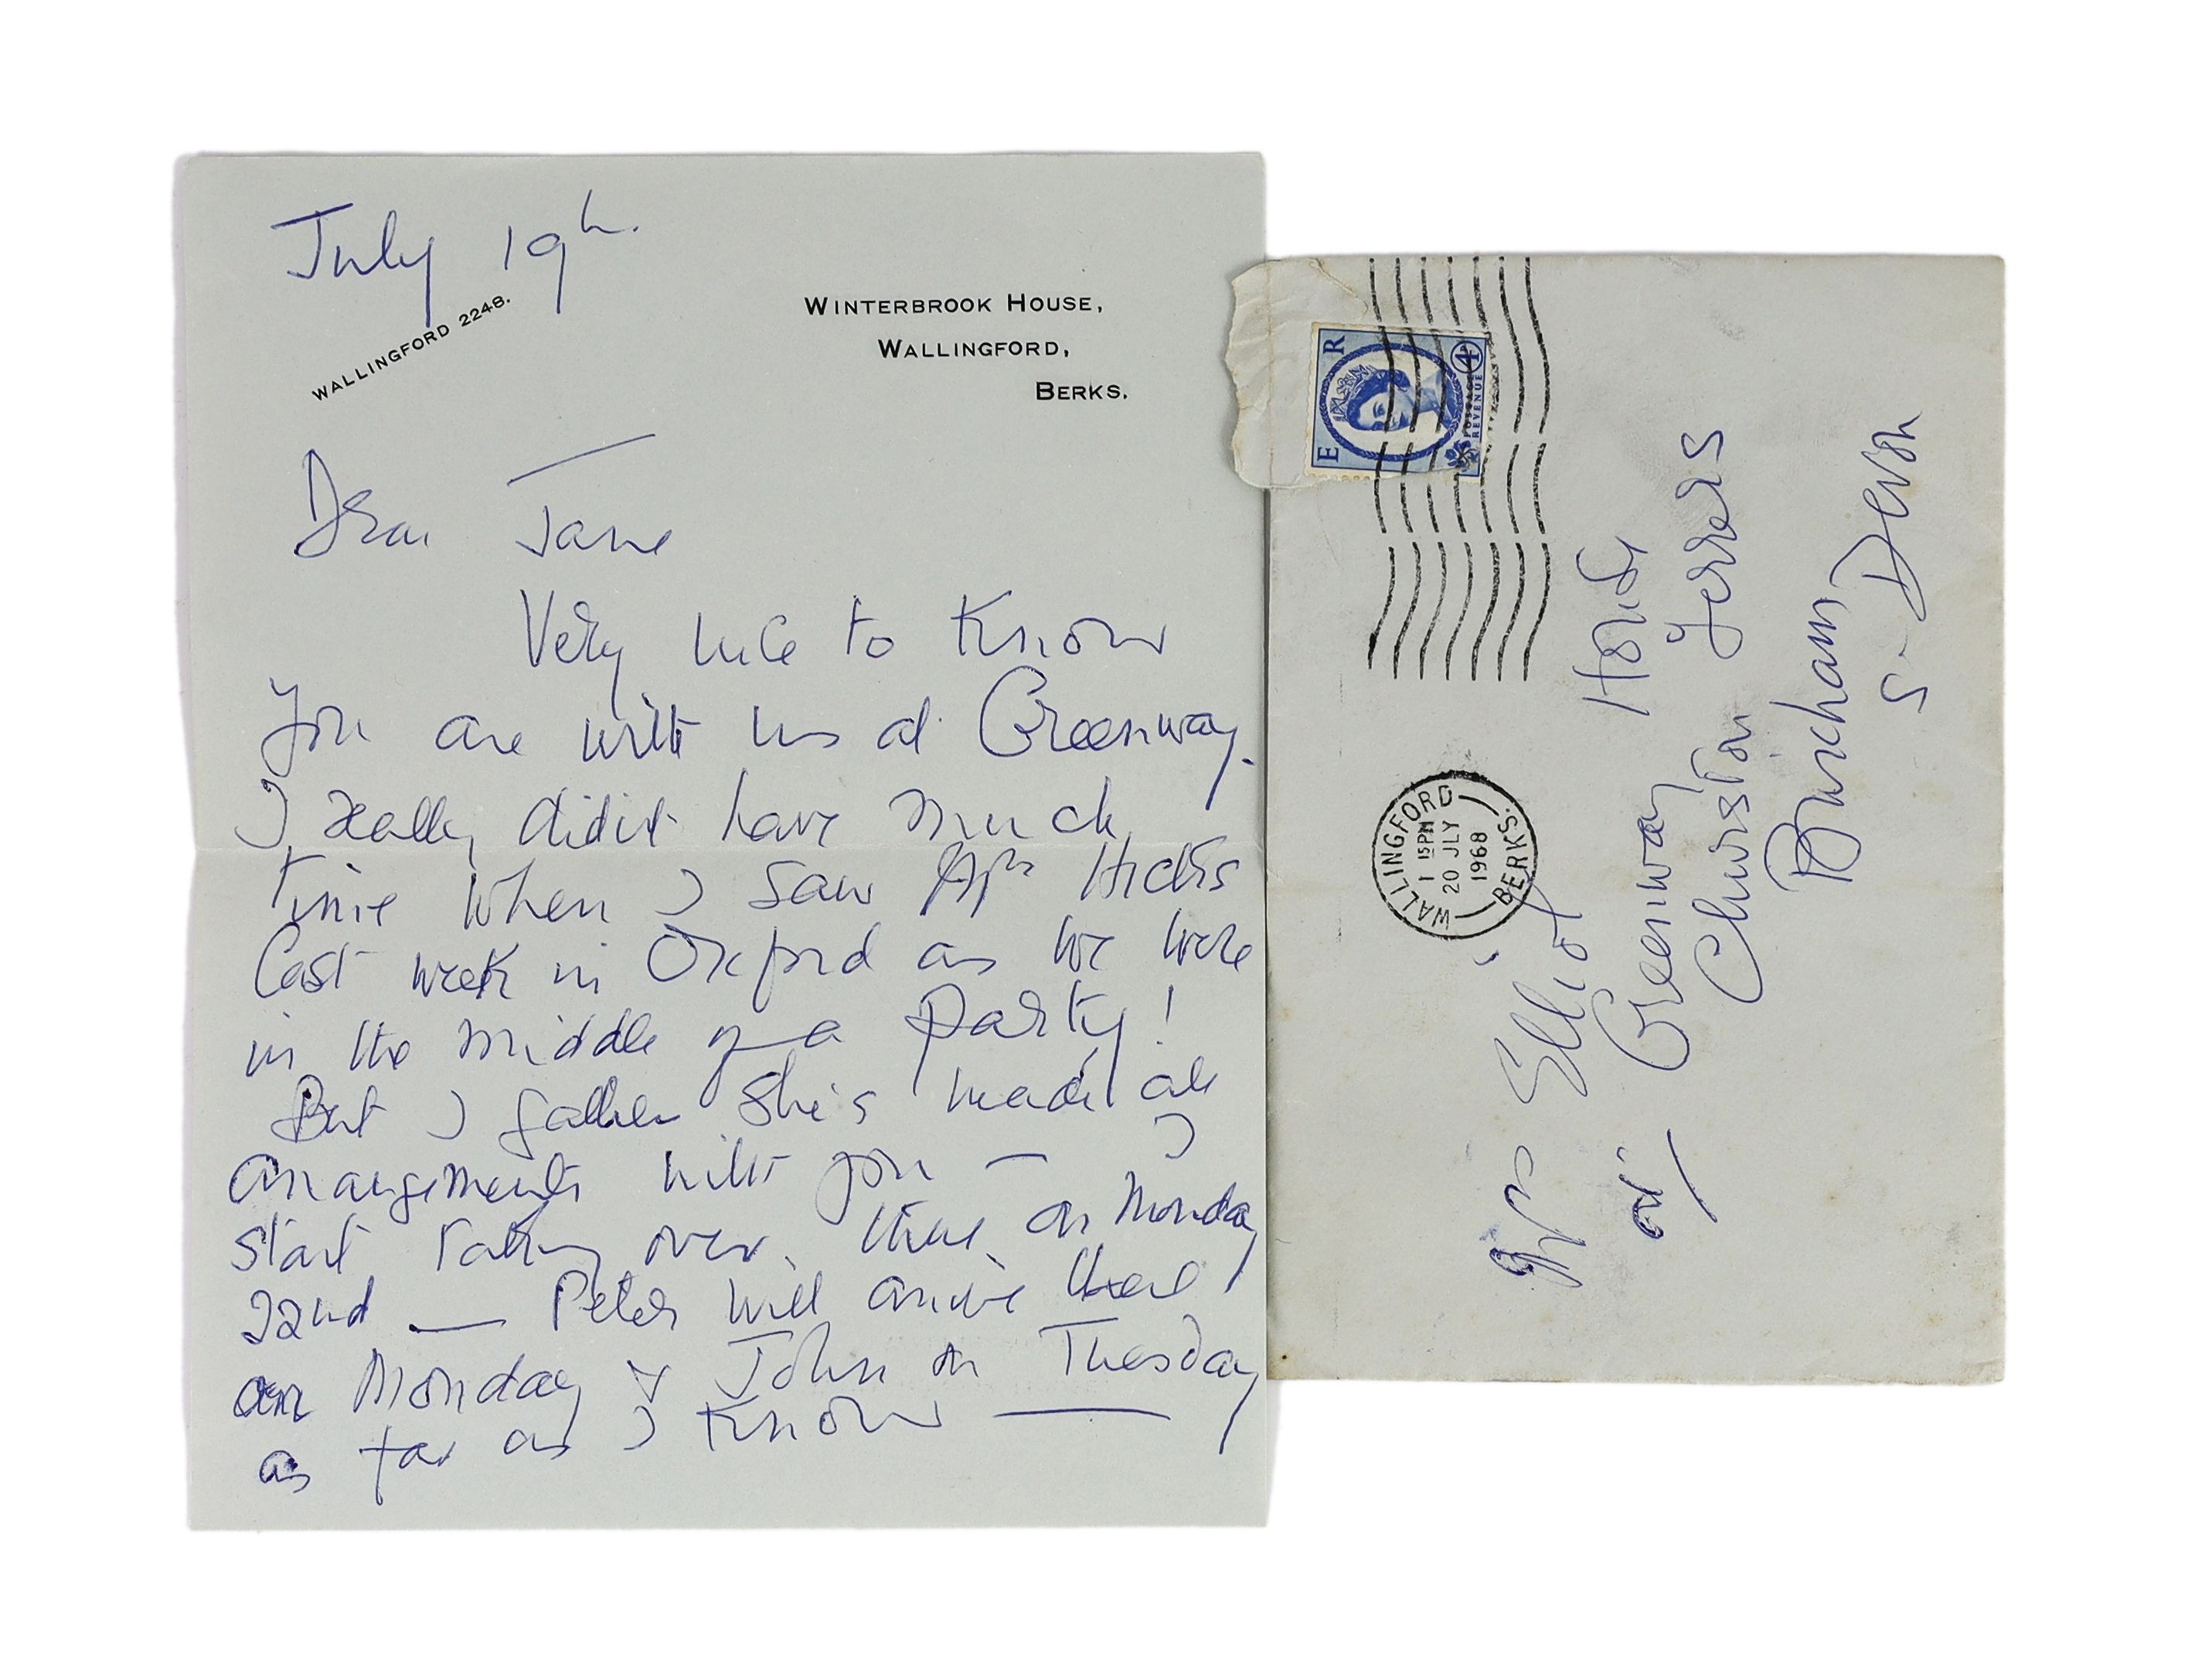 July 19th.
WALLINGFORD 2248.
WINTERBROOK HOUSE,
WALLINGFORD,
BERKS.
Dear Jane
Very nice to know
you are with us at Greenway.
I really didn't have much
time when I saw Mrs Hicks
last week in Oxford as we were
in the middle of a party!
But I gather she's made all
arrangements with you — I
start taking over there on Monday
22nd — Peter will arrive there
on Monday & John on Tuesday
as far as I know —
E R
4D
POSTAGE
REVENUE
WALLINGFORD
1 15PM
20 JLY
1968
BERKS.
Mrs Elliot
at Greenway House
Churston Ferrers
Brixham
S. Devon